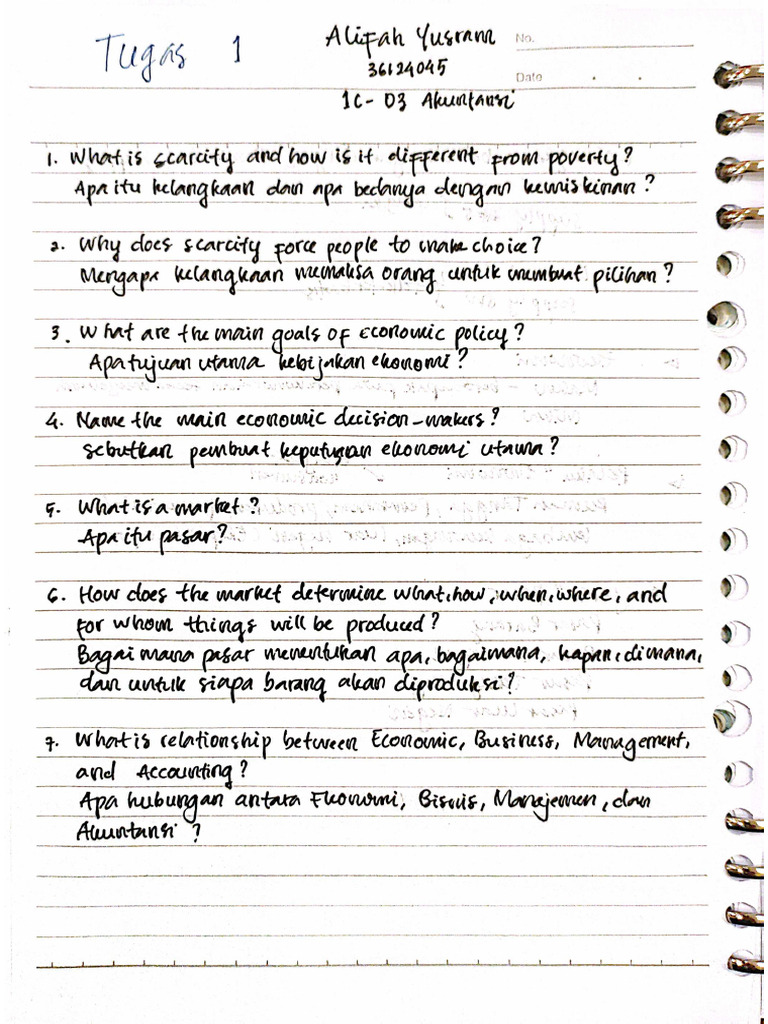 Tugas 1
Alifah Yusrani
No.
36124045
Date
1C - 03 Akuntansi
1. What is scarcity and how is it different from poverty?
Apa itu kelangkaan dan apa bedanya dengan kemiskinan?
2. Why does scarcity force people to make choice?
Mengapa kelangkaan memaksa orang untuk membuat pilihan?
3. What are the main goals of economic policy?
Apa tujuan utama kebijakan ekonomi?
4. Name the main economic decision-makers?
Sebutkan pembuat keputusan ekonomi utama?
5. What is a market?
Apa itu pasar?
6. How does the market determine what, how, when, where, and
for whom things will be produced?
Bagaimana pasar menentukan apa, bagaimana, kapan, dimana,
dan untuk siapa barang akan diproduksi?
7. What is relationship between Economic, Business, Management,
and Accounting?
Apa hubungan antara Ekonomi, Bisnis, Manajemen, dan
Akuntansi?